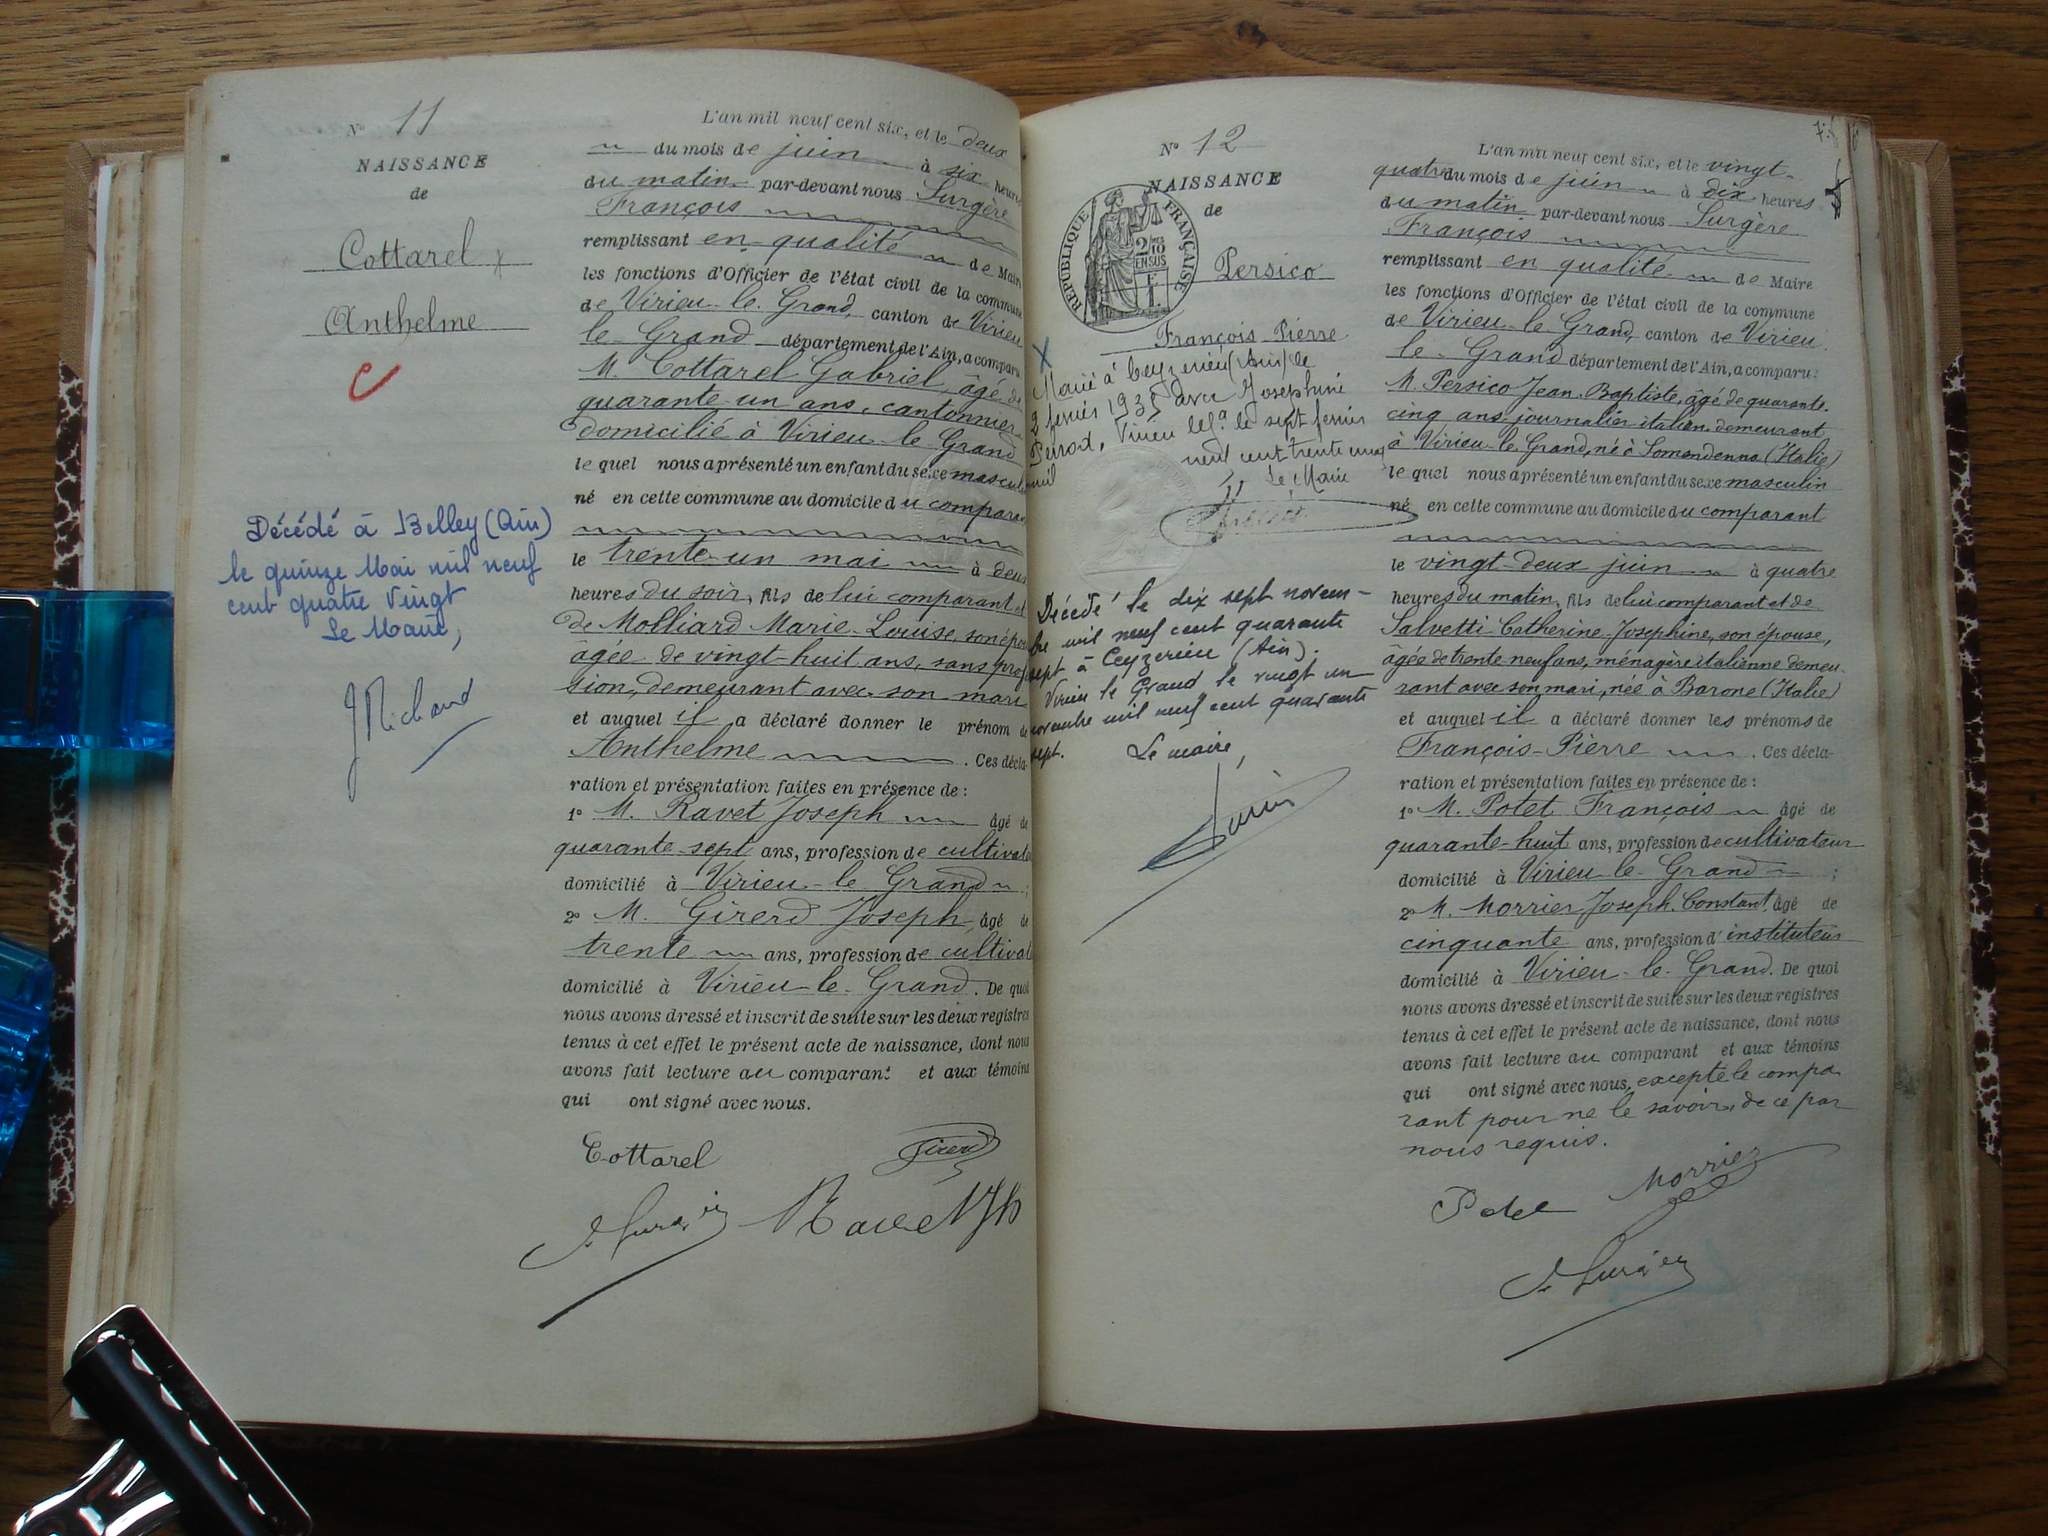 N° 11
NAISSANCE
de
Cottarel
Anthelme
Décédé à Belley (Ain)
le quinze Mai mil neuf
cent quatre vingt
Le Maire,
JMichaud
L'an mil neuf cent six, et le deux
du mois de juin à six heures
du matin par-devant nous Surgère
François
remplissant en qualité de Maire
les fonctions d'Officier de l'état civil de la commune
de Virieu-le-Grand, canton de Virieu
le Grand département de l'Ain, a comparu
M. Cottarel Gabriel, âgé de
quarante-un ans, cantonnier
domicilié à Virieu-le-Grand
le quel nous a présenté un enfant du sexe masculin
né en cette commune au domicile du comparant
le trente-un mai à deux
heures du soir, fils de lui comparant et
de Molliard Marie-Louise, son épou
âgée de vingt-huit ans, sans profes
sion, demeurant avec son mari
et auquel il a déclaré donner le prénom de
Anthelme . Ces décla-
ration et présentation faites en présence de :
1° M. Ravet Joseph âgé de
quarante-sept ans, profession de cultivate
domicilié à Virieu-le-Grand ;
2° M. Girerd Joseph, âgé de
trente ans, profession de cultivat
domicilié à Virieu-le-Grand. De quoi
nous avons dressé et inscrit de suite sur les deux registres
tenus à cet effet le présent acte de naissance, dont nous
avons fait lecture au comparant et aux témoins
qui ont signé avec nous.
Cottarel Girerd
Ravet Jh
N° 12
NAISSANCE
de
RÉPUBLIQUE FRANÇAISE
2/10 EN SUS
Persico
François Pierre
Marié à Ceyzerieu (Ain) le
2 février 1935 avec Joséphine
Perrod, Virieu le Gd le sept février
mil neuf cent trente cinq
Le Maire
Décédé le dix sept novem-
bre mil neuf cent quarante
sept à Ceyzerieu (Ain).
Virieu le Grand le vingt un
novembre mil neuf cent quarante
sept. Le maire,
L'an mil neuf cent six, et le vingt-
quatre du mois de juin à dix heures
du matin par-devant nous Surgère
François
remplissant en qualité de Maire
les fonctions d'Officier de l'état civil de la commune
de Virieu-le-Grand, canton de Virieu
le-Grand département de l'Ain, a comparu:
M. Persico Jean-Baptiste, âgé de quarante-
cinq ans, journalier italien demeurant
à Virieu-le-Grand, né à Somendenna (Italie)
le quel nous a présenté un enfant du sexe masculin
né en cette commune au domicile du comparant
le vingt-deux juin à quatre
heures du matin, fils de lui comparant et de
Salvetti Catherine-Joséphine, son épouse,
âgée de trente neuf ans, ménagère italienne demeu-
rant avec son mari, née à Barone (Italie)
et auquel il a déclaré donner les prénoms de
François-Pierre . Ces décla-
ration et présentation faites en présence de :
1° M. Potet François âgé de
quarante-huit ans, profession de cultivateur
domicilié à Virieu-le-Grand ;
2° M. Morrier Joseph-Constant, âgé de
cinquante ans, profession d'instituteur
domicilié à Virieu-le-Grand. De quoi
nous avons dressé et inscrit de suite sur les deux registres
tenus à cet effet le présent acte de naissance, dont nous
avons fait lecture au comparant et aux témoins
qui ont signé avec nous, excepté le compa-
rant pour ne le savoir, de ce par
nous requis.
Potet Morrier